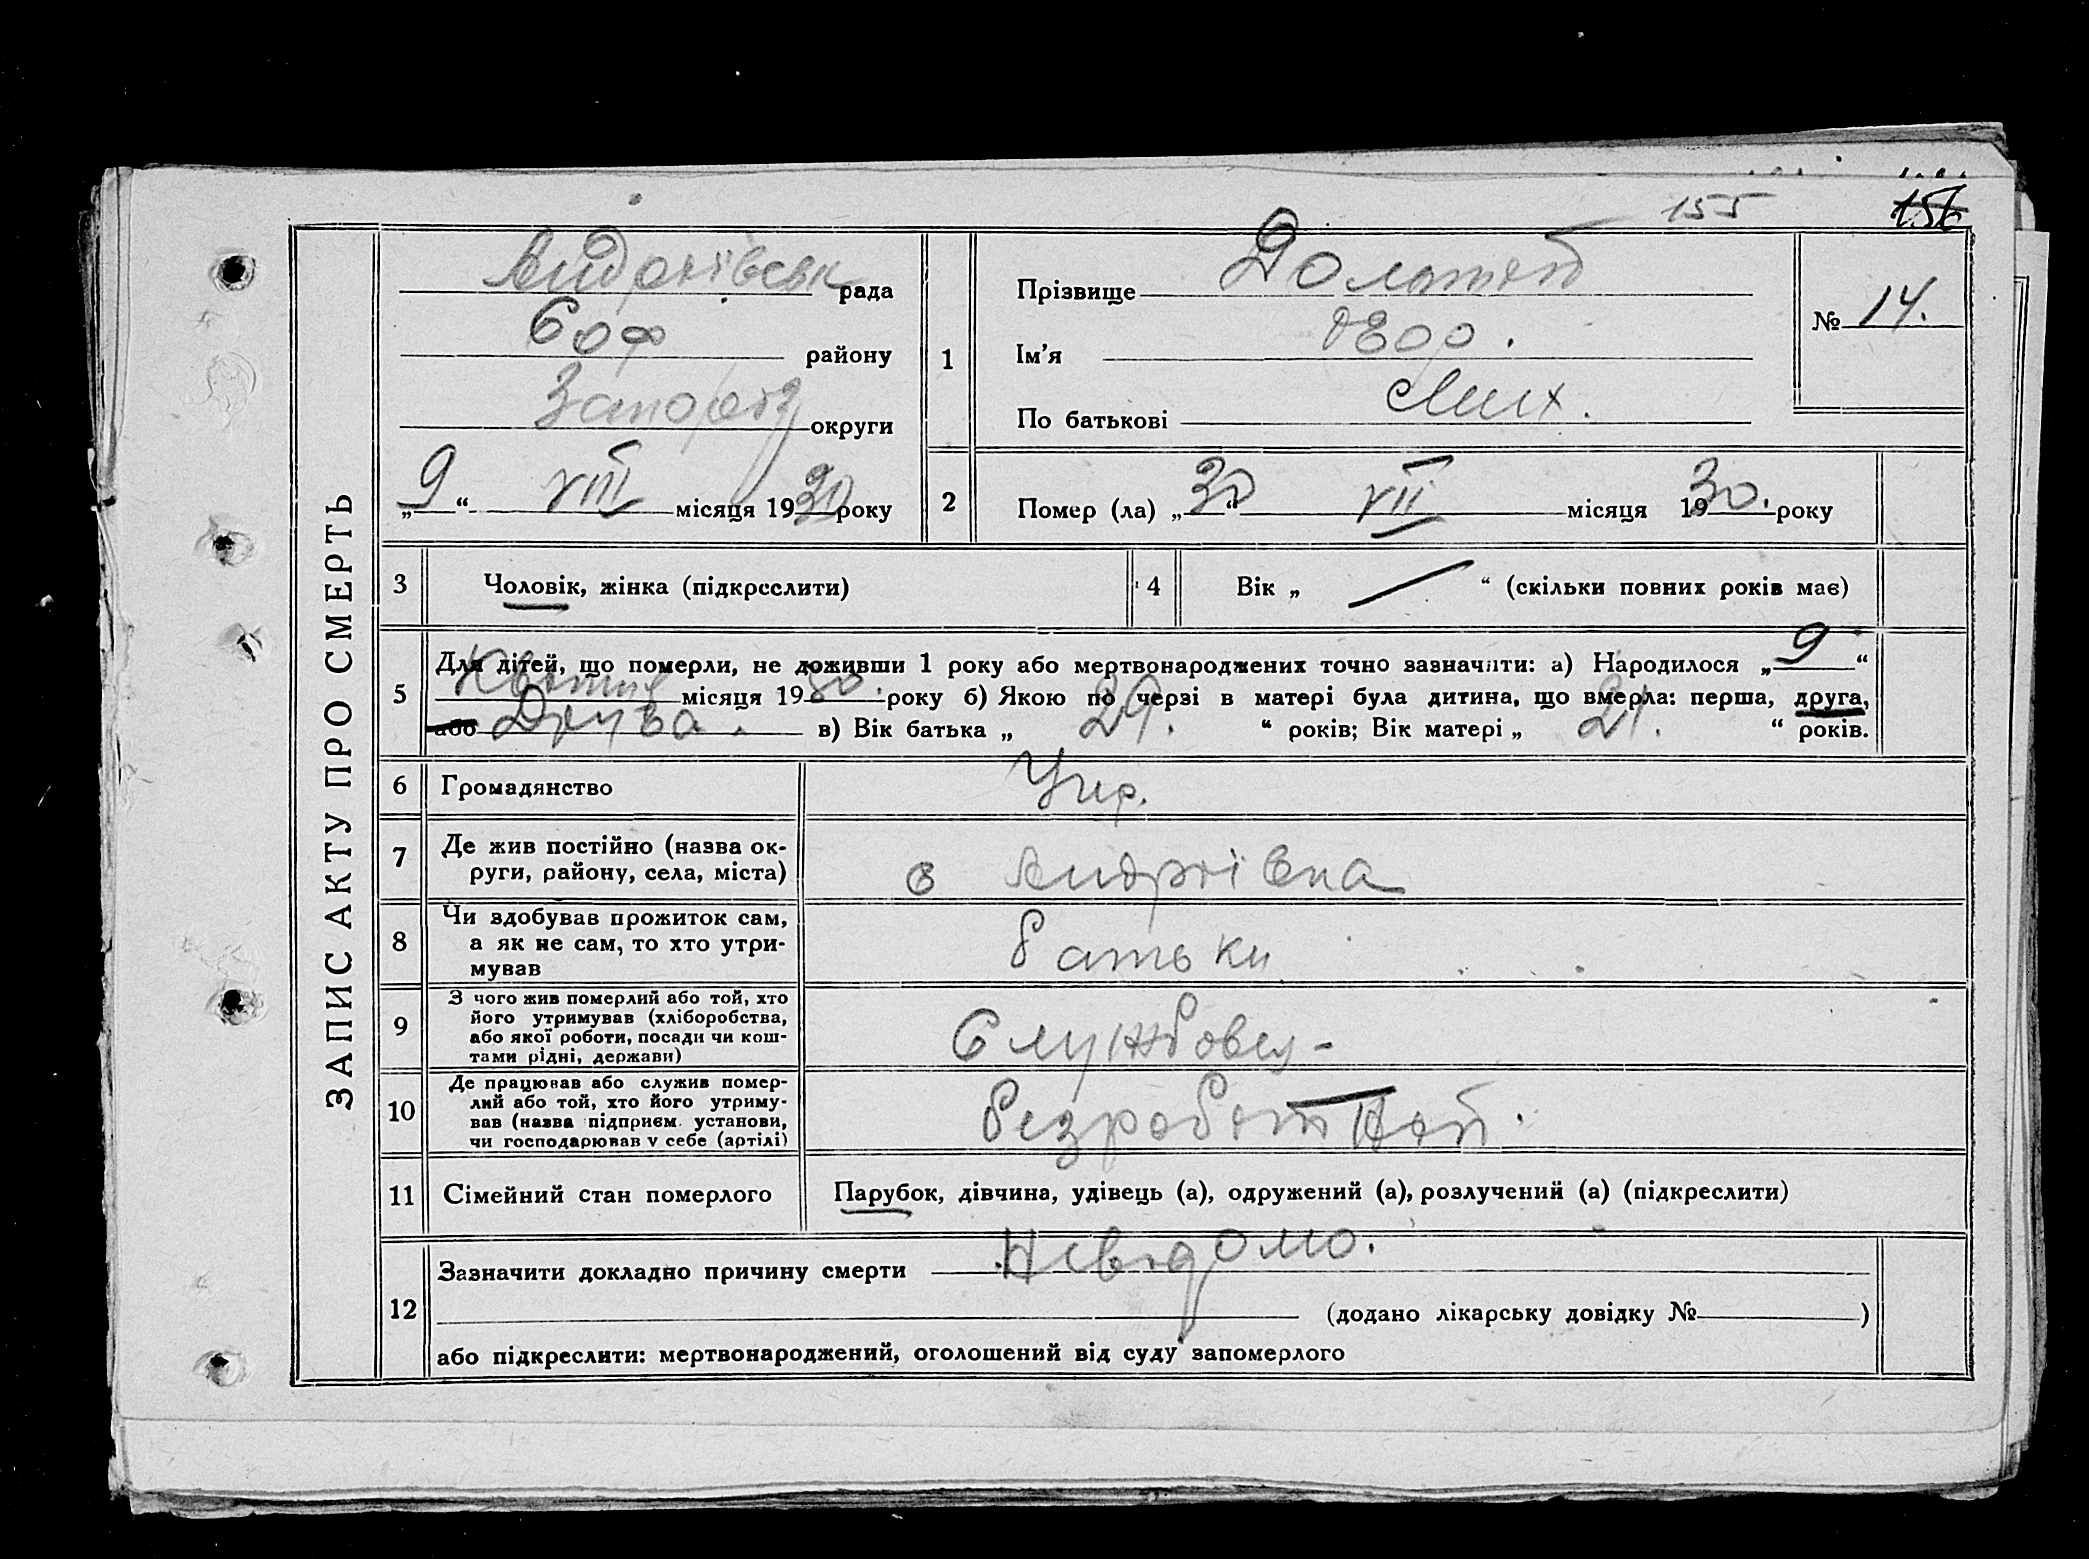 155 156
ЗАПИС АКТУ ПРО СМЕРТЬ
Андріївськ рада
Соф району
Запоріз округи
„9“ VIII місяця 1930 року
1 Прізвище
Ім'я
По батькові Мих.
№ 14.
2 Помер (ла) „30“ VII місяця 1930. року
3 Чоловік, жінка (підкреслити)
4 Вік „ / “ (скільки повних років має)
5 Для дітей, що померли, не доживши 1 року або мертвонароджених точно зазначити: а) Народилося „9“
Квітня місяця 1930. року б) Якою по черзі в матері була дитина, що вмерла: перша, друга,
або Друга. в) Вік батька „29.“ років; Вік матері „21.“ років.
6 Громадянство Укр.
7 Де жив постійно (назва округи, району, села, міста) с Андріївка
8 Чи здобував прожиток сам, а як не сам, то хто утримував батьки
9 З чого жив померлий або той, хто його утримував (хліборобства, або якої роботи, посади чи коштами рідні, держави) Службовец-
10 Де працював або служив померлий або той, хто його утримував (назва підприєм. установи, чи господарював у себе (артілі)
11 Сімейний стан померлого Парубок, дівчина, удівець (а), одружений (а), розлучений (а) (підкреслити)
12 Зазначити докладно причину смерти Невідомо.
(додано лікарську довідку № )
або підкреслити: мертвонароджений, оголошений від суду запомерлого